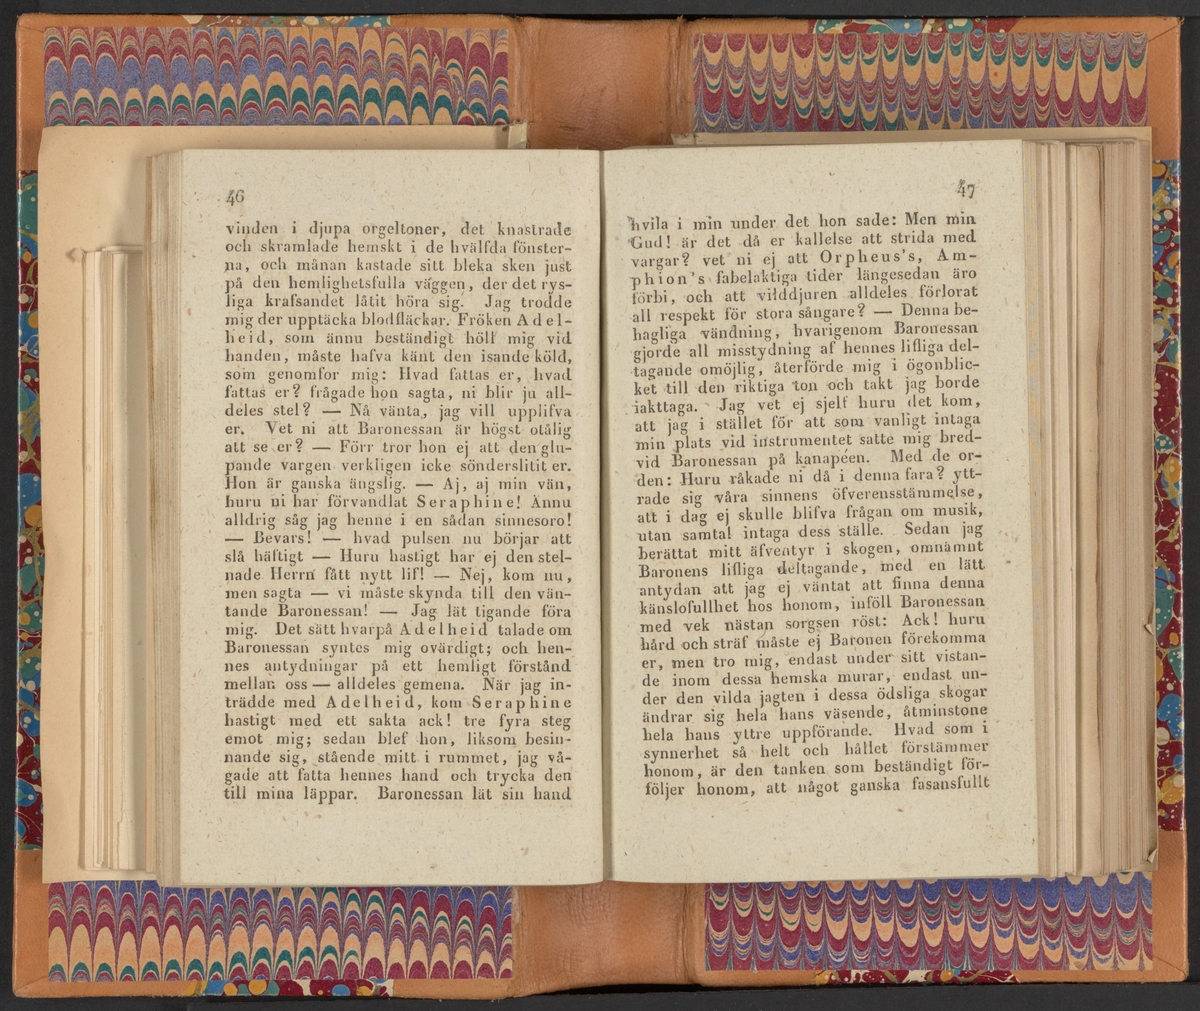 46
vinden i djupa orgeltoner, det knastrade
och skramlade hemskt i de hvälfda fönster-
na, och månan kastade sitt bleka sken just
på den hemlighetsfulla väggen, der det rys-
liga krafsandet låtit höra sig. Jag trodde
mig der upptäcka blodfläckar. Fröken Adel-
heid, som ännu beständigt höll mig vid
handen, måste hafva känt den isande köld,
som genomfor mig: Hvad fattas er, hvad
fattas er? frågade hon sagta, ni blir ju all-
deles stel? — Nå vänta, jag vill upplifva
er. Vet ni att Baronessan är högst otålig
att se er? — Förr tror hon ej att den glu-
pande vargen verkligen icke sönderslitit er.
Hon är ganska ängslig. — Aj, aj min vän,
huru ni har förvandlat Seraphine! Ännu
alldrig såg jag henne i en sådan sinnesoro!
— Bevars! — hvad pulsen nu börjar att
slå häftigt — Huru hastigt har ej den stel-
nade Herrn fått nytt lif! — Nej, kom nu,
men sagta — vi måste skynda till den vän-
tande Baronessan! — Jag lät tigande föra
mig. Det sätt hvarpå Adelheid talade om
Baronessan syntes mig ovärdigt; och hen-
nes antydningar på ett hemligt förstånd
mellan oss — alldeles gemena. När jag in-
trädde med Adelheid, kom Seraphine
hastigt med ett sakta ack! tre fyra steg
emot mig; sedan blef hon, liksom besin-
nande sig, stående mitt i rummet, jag vå-
gade att fatta hennes hand och trycka den
till mina läppar. Baronessan lät sin hand
47
hvila i min under det hon sade: Men min
Gud! är det då er kallelse att strida med
vargar? vet ni ej att Orpheus's, Am-
phion's fabelaktiga tider längesedan äro
förbi, och att vilddjuren alldeles förlorat
all respekt för stora sångare? — Denna be-
hagliga vändning, hvarigenom Baronessan
gjorde all misstydning af hennes lifliga del-
tagande omöjlig, återförde mig i ögonblic-
ket till den riktiga ton och takt jag borde
iakttaga. Jag vet ej sjelf huru det kom,
att jag i stället för att som vanligt intaga
min plats vid instrumentet satte mig bred-
vid Baronessan på kanapéen. Med de or-
den: Huru råkade ni då i denna fara? ytt-
rade sig våra sinnens öfverensstämmelse,
att i dag ej skulle blifva frågan om musik,
utan samtal intaga dess ställe. Sedan jag
berättat mitt äfventyr i skogen, omnämnt
Baronens lifliga deltagande, med en lätt
antydan att jag ej väntat att finna denna
känslofullhet hos honom, inföll Baronessan
med vek nästan sorgsen röst: Ack! huru
hård och sträf måste ej Baronen förekomma
er, men tro mig, endast under sitt vistan-
de inom dessa hemska murar, endast un-
der den vilda jagten i dessa ödsliga skogar
ändrar sig hela hans väsende, åtminstone
hela hans yttre uppförande. Hvad som i
synnerhet så helt och hållet förstämmer
honom, är den tanken som beständigt för-
följer honom, att något ganska fasansfullt